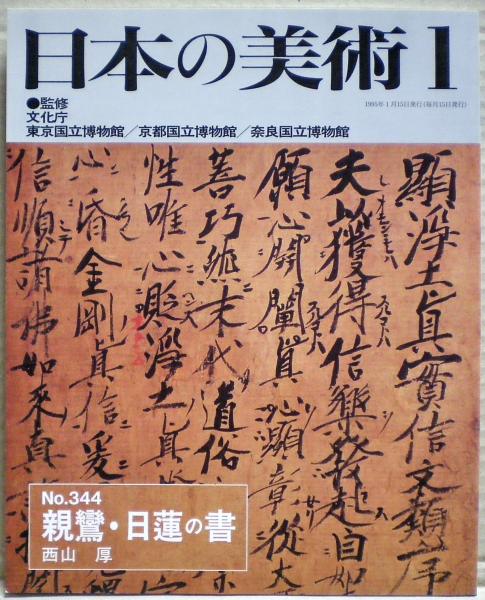 日本の美術 1
●監修
文化庁
東京国立博物館／京都国立博物館／奈良国立博物館
1995年1月15日発行(毎月15日発行)
顯浄土真實信文類序
夫以獲得信樂發起自如
願心開闡真心顯彰從大
善巧 末代道俗
性唯心貶浄土真
心昏金剛真信爰
信順諸佛如来真
No.344
親鸞・日蓮の書
西山 厚